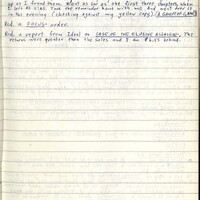 up as I found them. Went as far as the first three chapters, when
it was at 4:30. Took the remainder home with me and went over it
in the evening (checking against my yellow copy). (A GAME OF GAMES)
Rcd. a FOCUS order.
Rcd. a report from Ideal on CASE OF THE ELUSIVE ASSASSIN. The
returns were greater than the sales and I am $6.55 behind.